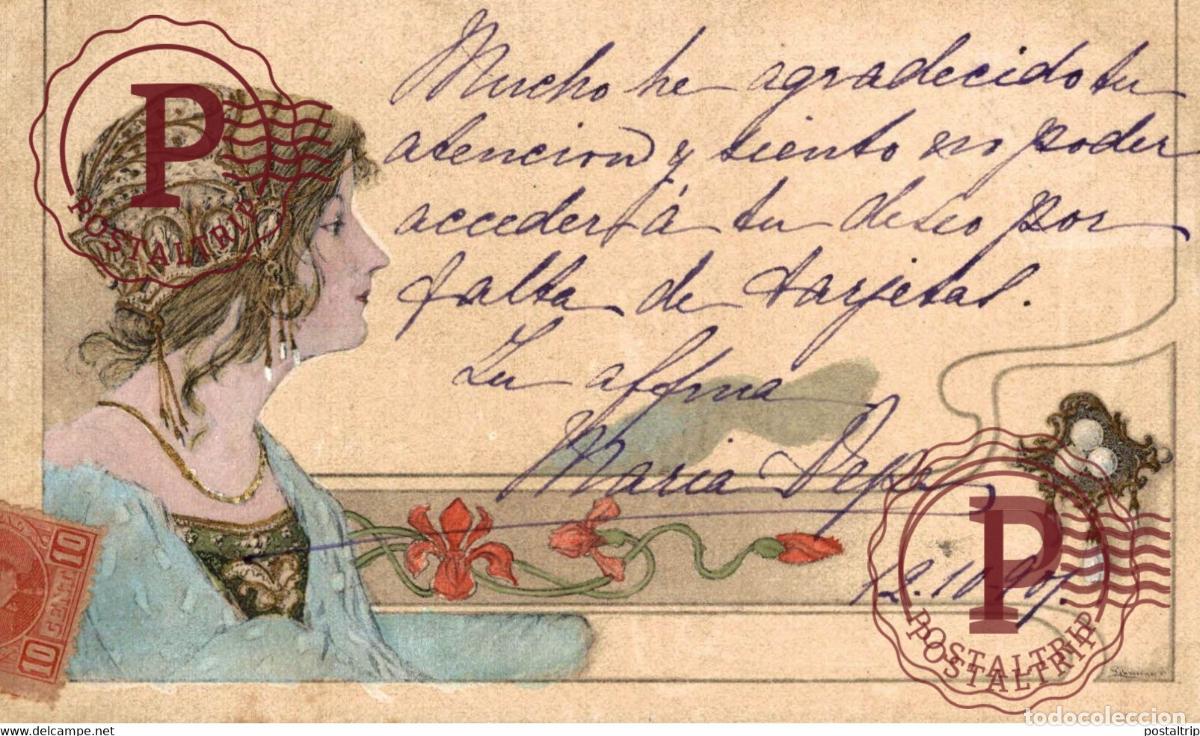 Mucho he agradecido tu
atencion y siento no poder
acceder á tu deseo por
falta de tarjetas.
Tu affma
Maria Pepa
12.10.901.
10 CENT. 10
P
POSTALTRIP
P
POSTALTRIP
POSTALTRIP
todocoleccion
www.delcampe.net
postaltrip